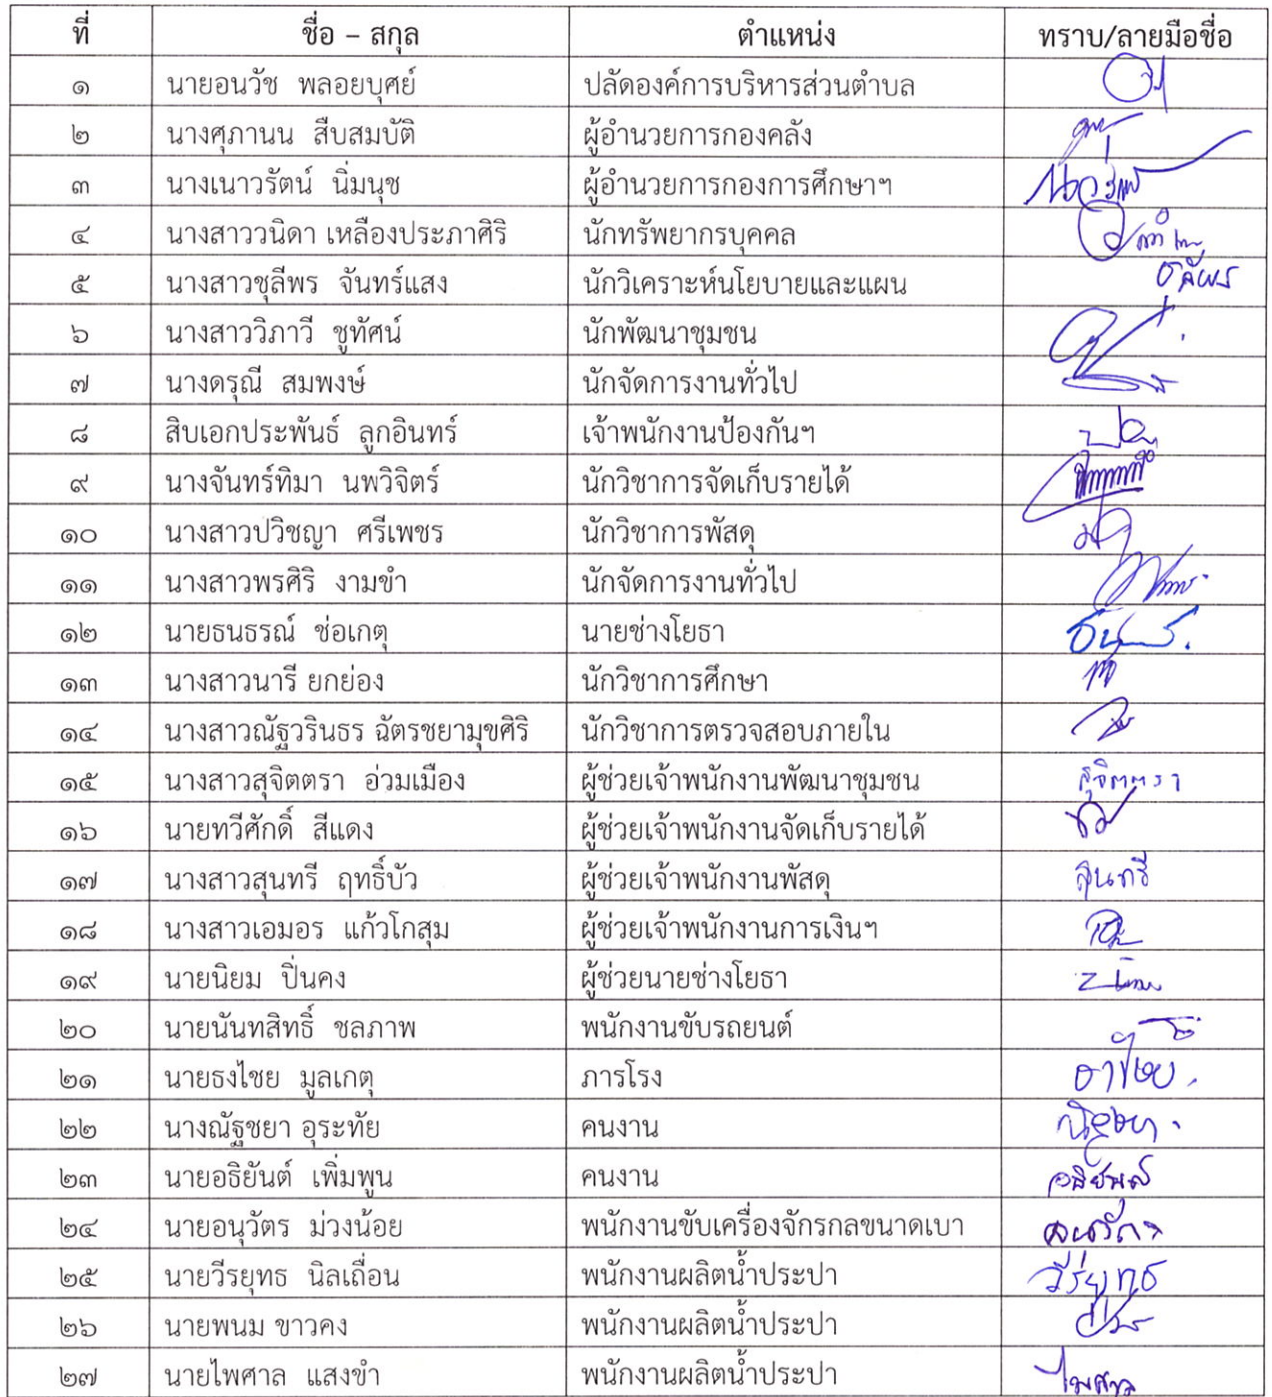 ที่ ชื่อ – สกุล ตำแหน่ง ทราบ/ลายมือชื่อ
๑ นายอนวัช พลอยบุศย์ ปลัดองค์การบริหารส่วนตำบล
๒ นางศุภานน สืบสมบัติ ผู้อำนวยการกองคลัง
๓ นางเนาวรัตน์ นิ่มนุช ผู้อำนวยการกองการศึกษาฯ
๔ นางสาววนิดา เหลืองประภาศิริ นักทรัพยากรบุคคล
๕ นางสาวชุลีพร จันทร์แสง นักวิเคราะห์นโยบายและแผน
๖ นางสาววิภาวี ชูทัศน์ นักพัฒนาชุมชน
๗ นางดรุณี สมพงษ์ นักจัดการงานทั่วไป
๘ สิบเอกประพันธ์ ลูกอินทร์ เจ้าพนักงานป้องกันฯ
๙ นางจันทร์ทิมา นพวิจิตร์ นักวิชาการจัดเก็บรายได้
๑๐ นางสาวปวิชญา ศรีเพชร นักวิชาการพัสดุ
๑๑ นางสาวพรศิริ งามขำ นักจัดการงานทั่วไป
๑๒ นายธนธรณ์ ช่อเกตุ นายช่างโยธา
๑๓ นางสาวนารี ยกย่อง นักวิชาการศึกษา
๑๔ นางสาวณัฐวรินธร ฉัตรชยามุขศิริ นักวิชาการตรวจสอบภายใน
๑๕ นางสาวสุจิตตรา อ่วมเมือง ผู้ช่วยเจ้าพนักงานพัฒนาชุมชน สุจิตตรา
๑๖ นายทวีศักดิ์ สีแดง ผู้ช่วยเจ้าพนักงานจัดเก็บรายได้
๑๗ นางสาวสุนทรี ฤทธิ์บัว ผู้ช่วยเจ้าพนักงานพัสดุ สุนทรี
๑๘ นางสาวเอมอร แก้วโกสุม ผู้ช่วยเจ้าพนักงานการเงินฯ
๑๙ นายนิยม ปิ่นคง ผู้ช่วยนายช่างโยธา
๒๐ นายนันทสิทธิ์ ชลภาพ พนักงานขับรถยนต์
๒๑ นายธงไชย มูลเกตุ ภารโรง
๒๒ นางณัฐชยา อุระทัย คนงาน
๒๓ นายอธิยันต์ เพิ่มพูน คนงาน
๒๔ นายอนุวัตร ม่วงน้อย พนักงานขับเครื่องจักรกลขนาดเบา
๒๕ นายวีรยุทธ นิลเถื่อน พนักงานผลิตน้ำประปา วีรยุทธ
๒๖ นายพนม ขาวคง พนักงานผลิตน้ำประปา
๒๗ นายไพศาล แสงขำ พนักงานผลิตน้ำประปา ไพศาล